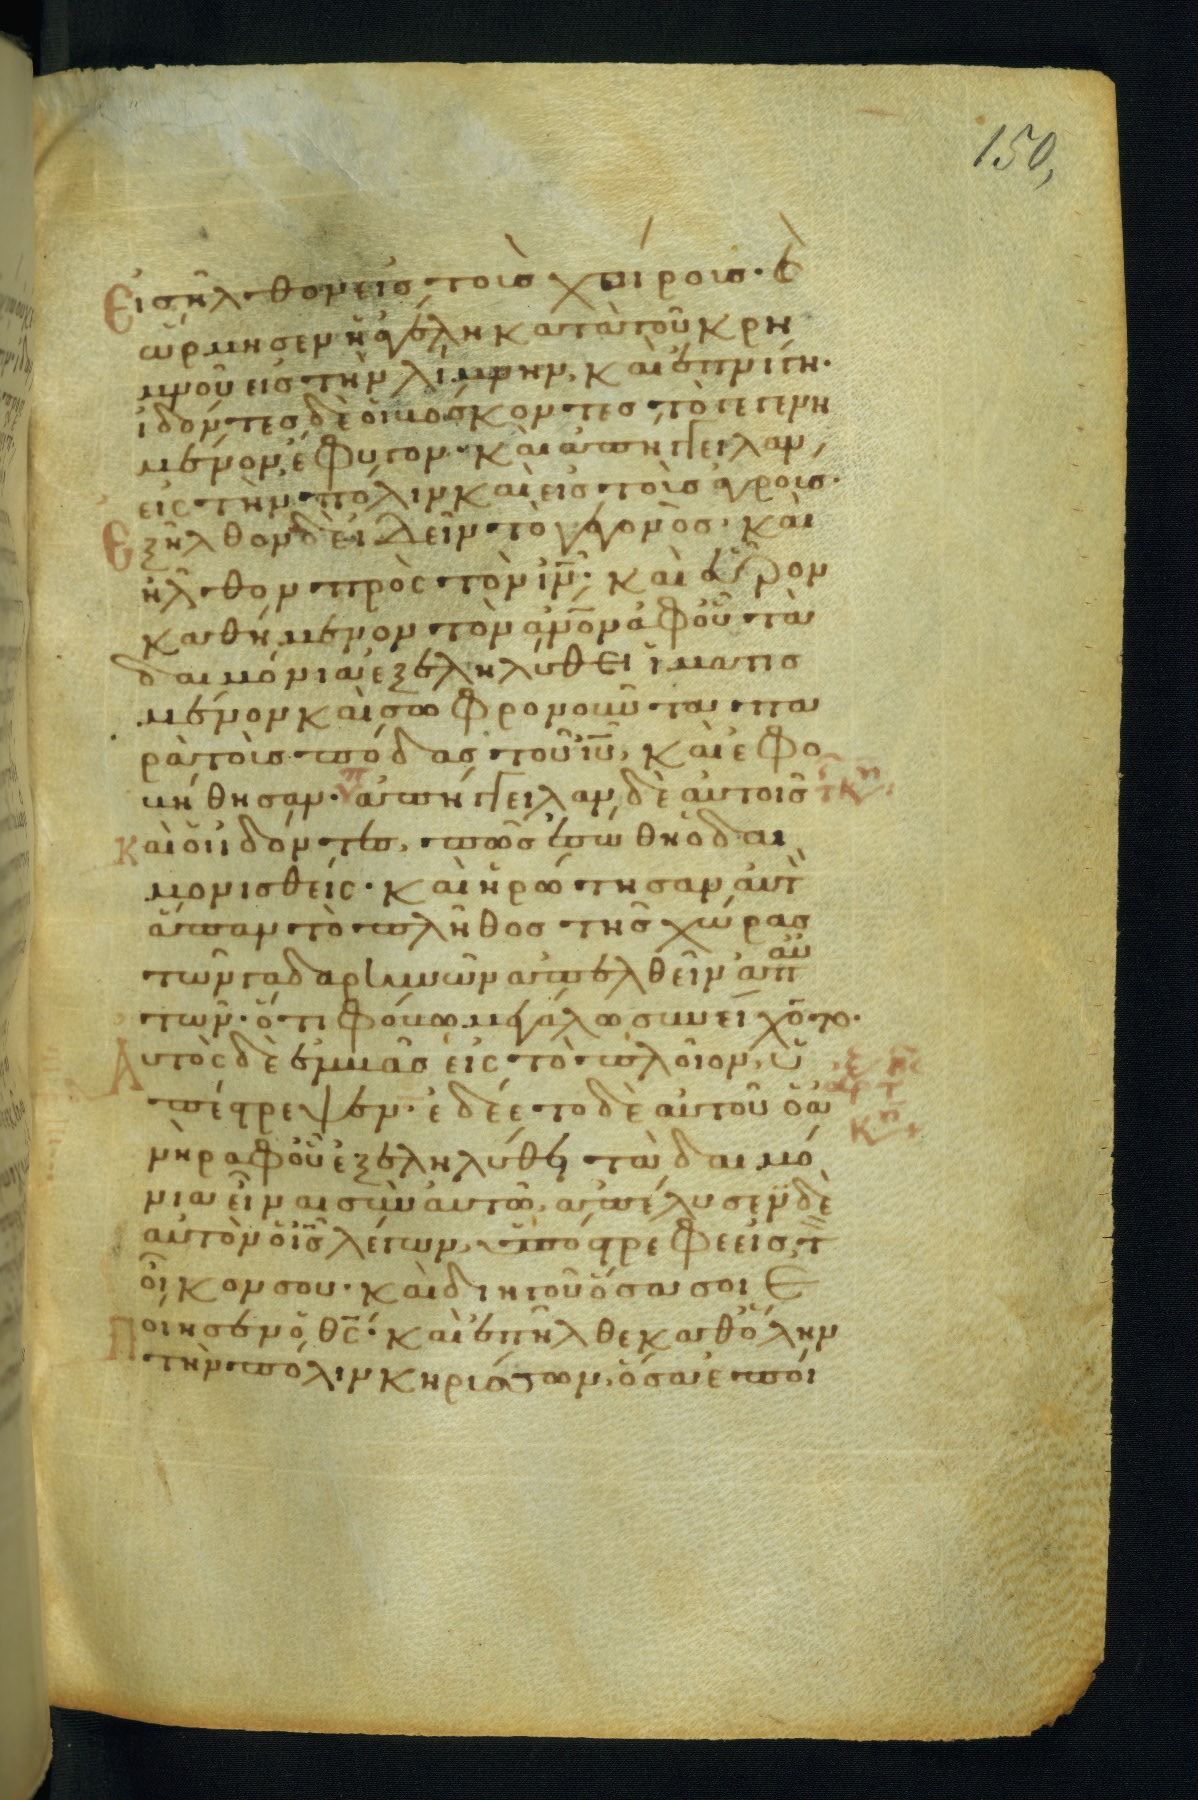 150,
Εἰσῆλθον εἰς τοὺς χοίρους· καὶ
ὥρμησεν ἡ ἀγέλη κατὰ τοῦ κρη
μνοῦ εἰς τὴν λίμνην, καὶ ἐπνίγη.
ἰδόντες δὲ οἱ βόσκοντες τὸ γεγενη
μένον, ἔφυγον· καὶ ἀπήγγειλαν,
εἰς τὴν πόλιν καὶ εἰς τοὺς ἀγρούς·
Ἐξῆλθον δὲ ἰδεῖν τὸ γεγονὸς· καὶ
ἦλθον πρὸς τὸν ἰν̅· καὶ εὗρον
καθήμενον τὸν ἀν̅ον ἀφ' οὗ τὰ
δαιμόνια ἐξεληλύθει ἱματισ
μένον καὶ σωφρονοῦντα πα
ρὰ τοὺς πόδας τοῦ ἰυ̅, καὶ ἐφο
βήθησαν· ἀπήγγειλαν δὲ αὐτοῖς
καὶ οἱ ἰδόντες, πῶς ἐσώθη ὁ δαι
μονισθείς· καὶ ἠρώτησαν αὐτ
ἅπαν τὸ πλῆθος τῆς χώρας
τῶν γαδαρηνῶν ἀπελθεῖν ἀπ αὐ
τῶν· ὅτι φόβω μεγάλω συνείχοντο·
Αὐτὸς δὲ ἐμβὰς εἰς τὸ πλοῖον, ὑ
πέστρεψεν· ἐδέετο δὲ αὐτοῦ ὁ ἀ
νὴρ ἀφ' οὗ ἐξεληλύθει τὰ δαιμό
νια εἶναι σὺν αὐτῶ, ἀπέλυσεν δὲ
αὐτὸν ὁ ἰς̅ λέγων, ὑπόστρεφε εἰς τ
οἶκον σου· καὶ διηγοῦ ὅσα σοι ἐ
ποίησεν ὁ θς̅· καὶ ἀπῆλθε καθ' ὅλην
τὴν πόλιν κηρύσσων, ὅσα ἐποί